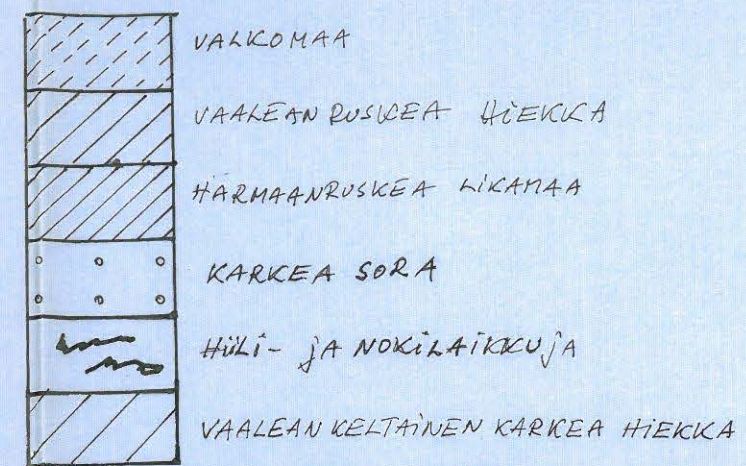 VALKOMAA
VAALEAN RUSKEA HIEKKA
HARMAANRUSKEA LIKAMAA
KARKEA SORA
HIILI- JA NOKILAIKKUJA
VAALEAN KELTAINEN KARKEA HIEKKA